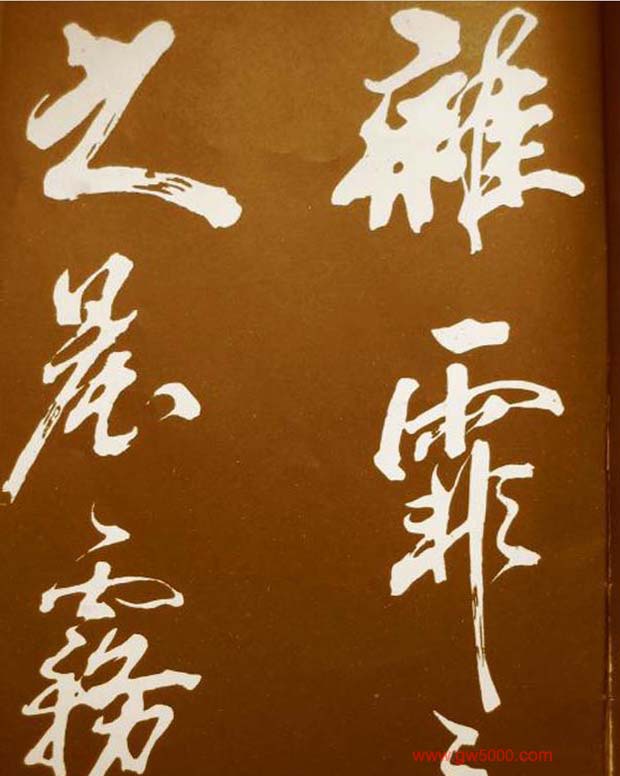 雜霏〻
之晨霧
www.gw5000.com